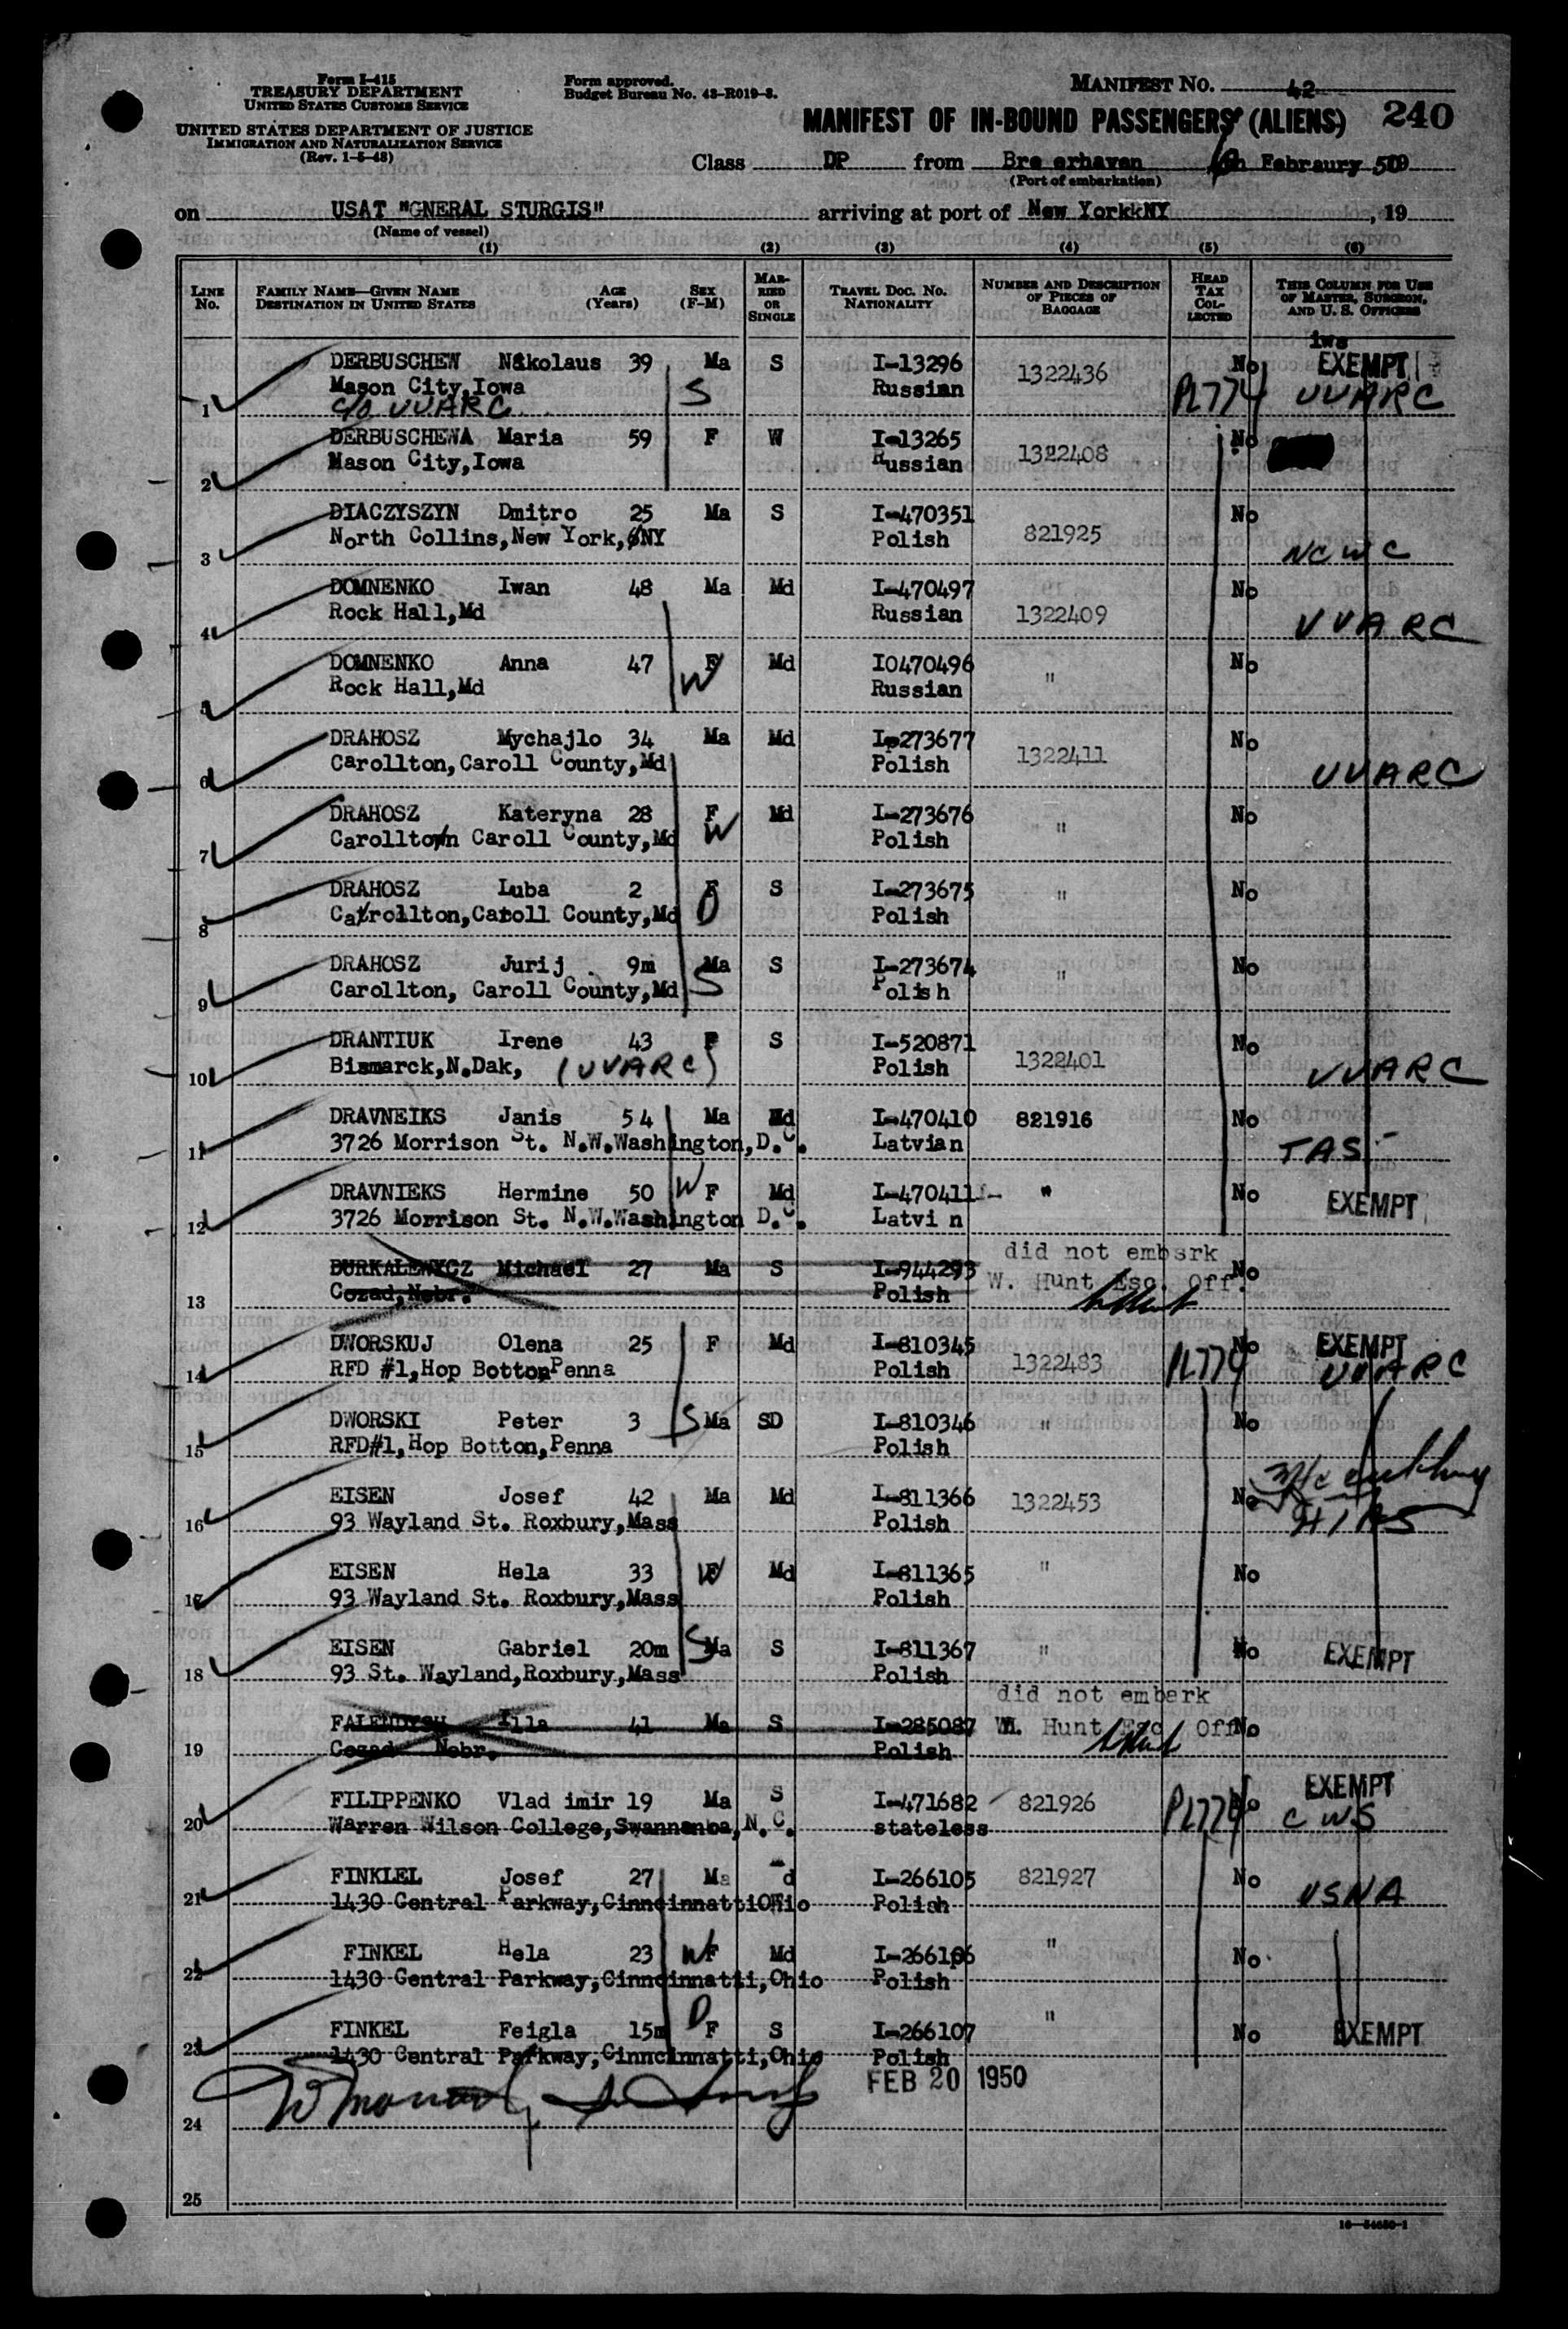 Form I-415
TREASURY DEPARTMENT
UNITED STATES CUSTOMS SERVICE
UNITED STATES DEPARTMENT OF JUSTICE
IMMIGRATION AND NATURALIZATION SERVICE
(Rev. 1-5-48)
Form approved.
Budget Bureau No. 43-R019-3.
MANIFEST NO. 42
MANIFEST OF IN-BOUND PASSENGERS (ALIENS) 240
Class DP from Bre erhaven Febraury 50
(Port of embarkation)
on USAT "GNERAL STURGIS" arriving at port of New YorkkNY, 19
(Name of vessel)
(1) (2) (3) (4) (5) (6)
LINE No. FAMILY NAME—GIVEN NAME DESTINATION IN UNITED STATES AGE (Years) SEX (F-M) MARRIED OR SINGLE TRAVEL DOC. NO. NATIONALITY NUMBER AND DESCRIPTION OF PIECES OF BAGGAGE HEAD TAX COLLECTED THIS COLUMN FOR USE OF MASTER, SURGEON, AND U. S. OFFICERS
iws
DERBUSCHEW Nikolaus 39 Ma S I-13296 1322436 No EXEMPT
1 Mason City,Iowa S Russian PL774 UVARC
c/o UVARC
DERBUSCHEWA Maria 59 F W I-13265 1322408 No
2 Mason City,Iowa Russian
DIACZYSZYN Dmitro 25 Ma S I-470351 821925 No
3 North Collins,New York,NY Polish NCWC
DOMNENKO Iwan 48 Ma Md I-470497 1322409 No
4 Rock Hall,Md Russian VVARC
DOMNENKO Anna 47 F Md I0470496 " No
5 Rock Hall,Md W Russian
DRAHOSZ Mychajlo 34 Ma Md I-273677 1322411 No
6 Carollton,Caroll County,Md Polish UVARC
DRAHOSZ Kateryna 28 F Md I-273676 " No
7 Carollton Caroll County,Md W Polish
DRAHOSZ Luba 2 F S I-273675 " No
8 Carrollton,Caroll County,Md D Polish
DRAHOSZ Jurij 9m Ma S I-273674 " No
9 Carollton, Caroll County,Md S Polish
DRANTIUK Irene 43 F S I-520871 1322401 No
10 Bismarck,N.Dak, (UVARC) Polish VVARC
DRAVNEIKS Janis 54 Ma Md I-470410 821916 No
11 3726 Morrison St. N.W.Washington,D.C. Latvian TAS
DRAVNIEKS Hermine 50 W F Md I-470411 " No EXEMPT
12 3726 Morrison St. N.W.Washington D.C. Latvi n
did not embark
DURKALEWYCZ Michael 27 Ma S I-944293 W. Hunt Esc. Off. No
13 Cozad,Nebr. Polish
DWORSKUJ Olena 25 F Md I-810345 1322483 PL774 No EXEMPT
14 RFD #1,Hop Botton Penna Polish UVARC
DWORSKI Peter 3 S Ma SD I-810346 " No
15 RFD#1,Hop Botton,Penna Polish
EISEN Josef 42 Ma Md I-811366 1322453 No
16 93 Wayland St. Roxbury,Mass Polish HIAS
EISEN Hela 33 F Md I-811365 " No
17 93 Wayland St. Roxbury,Mass Polish
EISEN Gabriel 20m S Ma S I-811367 " No EXEMPT
18 93 St. Wayland,Roxbury,Mass Polish
did not embark
Illa 41 Ma S I-285087 W. Hunt Esc Off No
19 Cozad Nebr. Polish
FILIPPENKO Vlad imir 19 Ma S I-471682 821926 PL774 No EXEMPT
20 Warren Wilson College,Swannanoa,N.C. stateless CWS
FINKLEL Josef 27 Ma d I-266105 821927 No
21 1430 Central Parkway,CinncinnattiOhio Polish USNA
FINKEL Hela 23 W F Md I-266106 " No
22 1430 Central Parkway,Cinncinnatti,Ohio Polish
FINKEL Feigla 15m D F S I-266107 " No EXEMPT
23 1430 Central Parkway,Cinncinnatti,Ohio Polish
FEB 20 1950
24
25